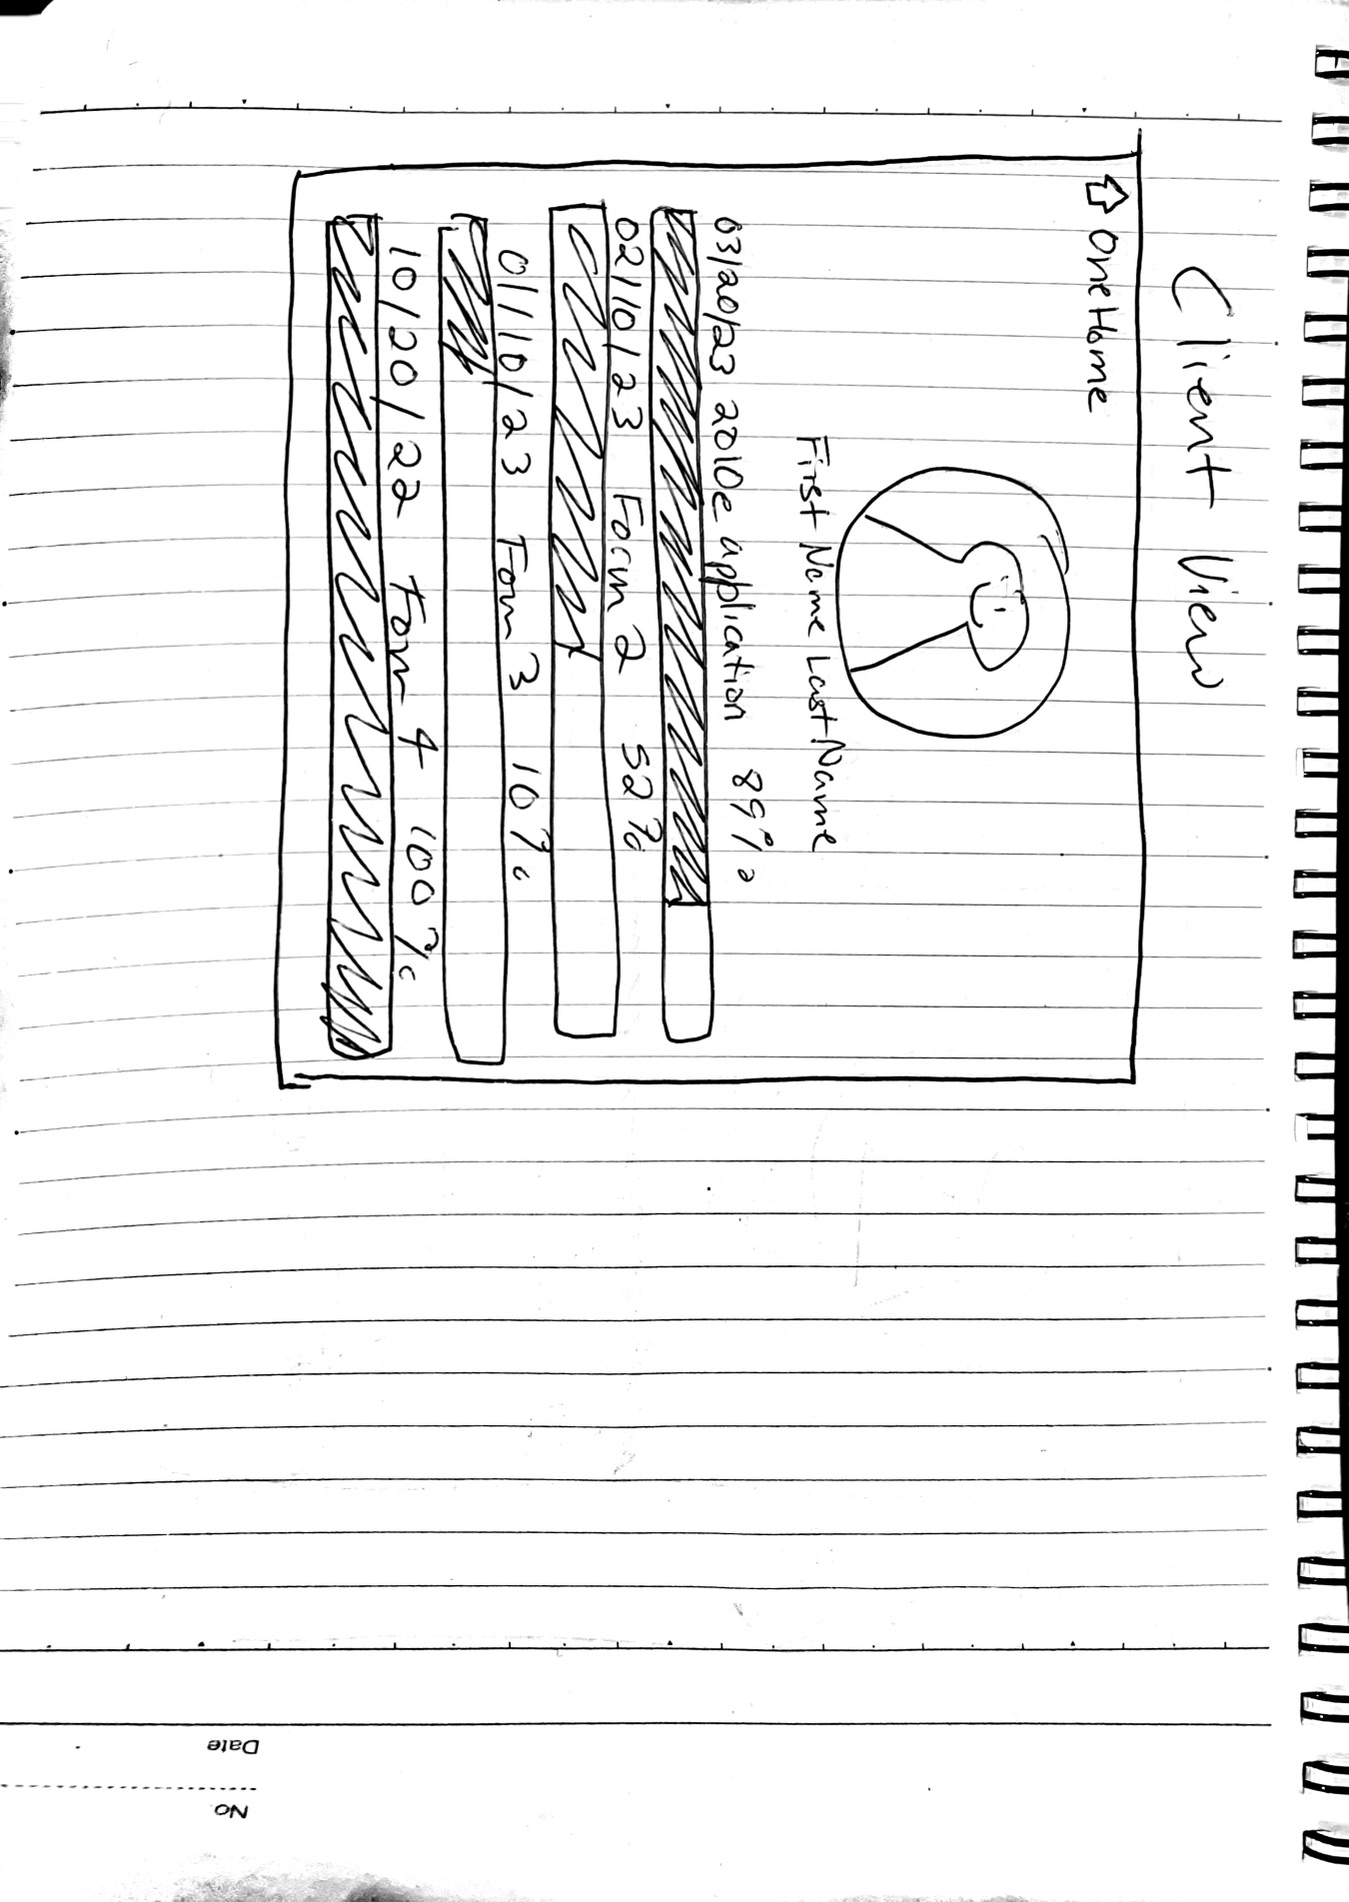 Client View
OneHome
First Name Last Name
03/20/23 2010e application 89%
02/10/23 Form 2 52%
01/10/23 Form 3 10%
10/20/22 Form 4 100%
Date
No.